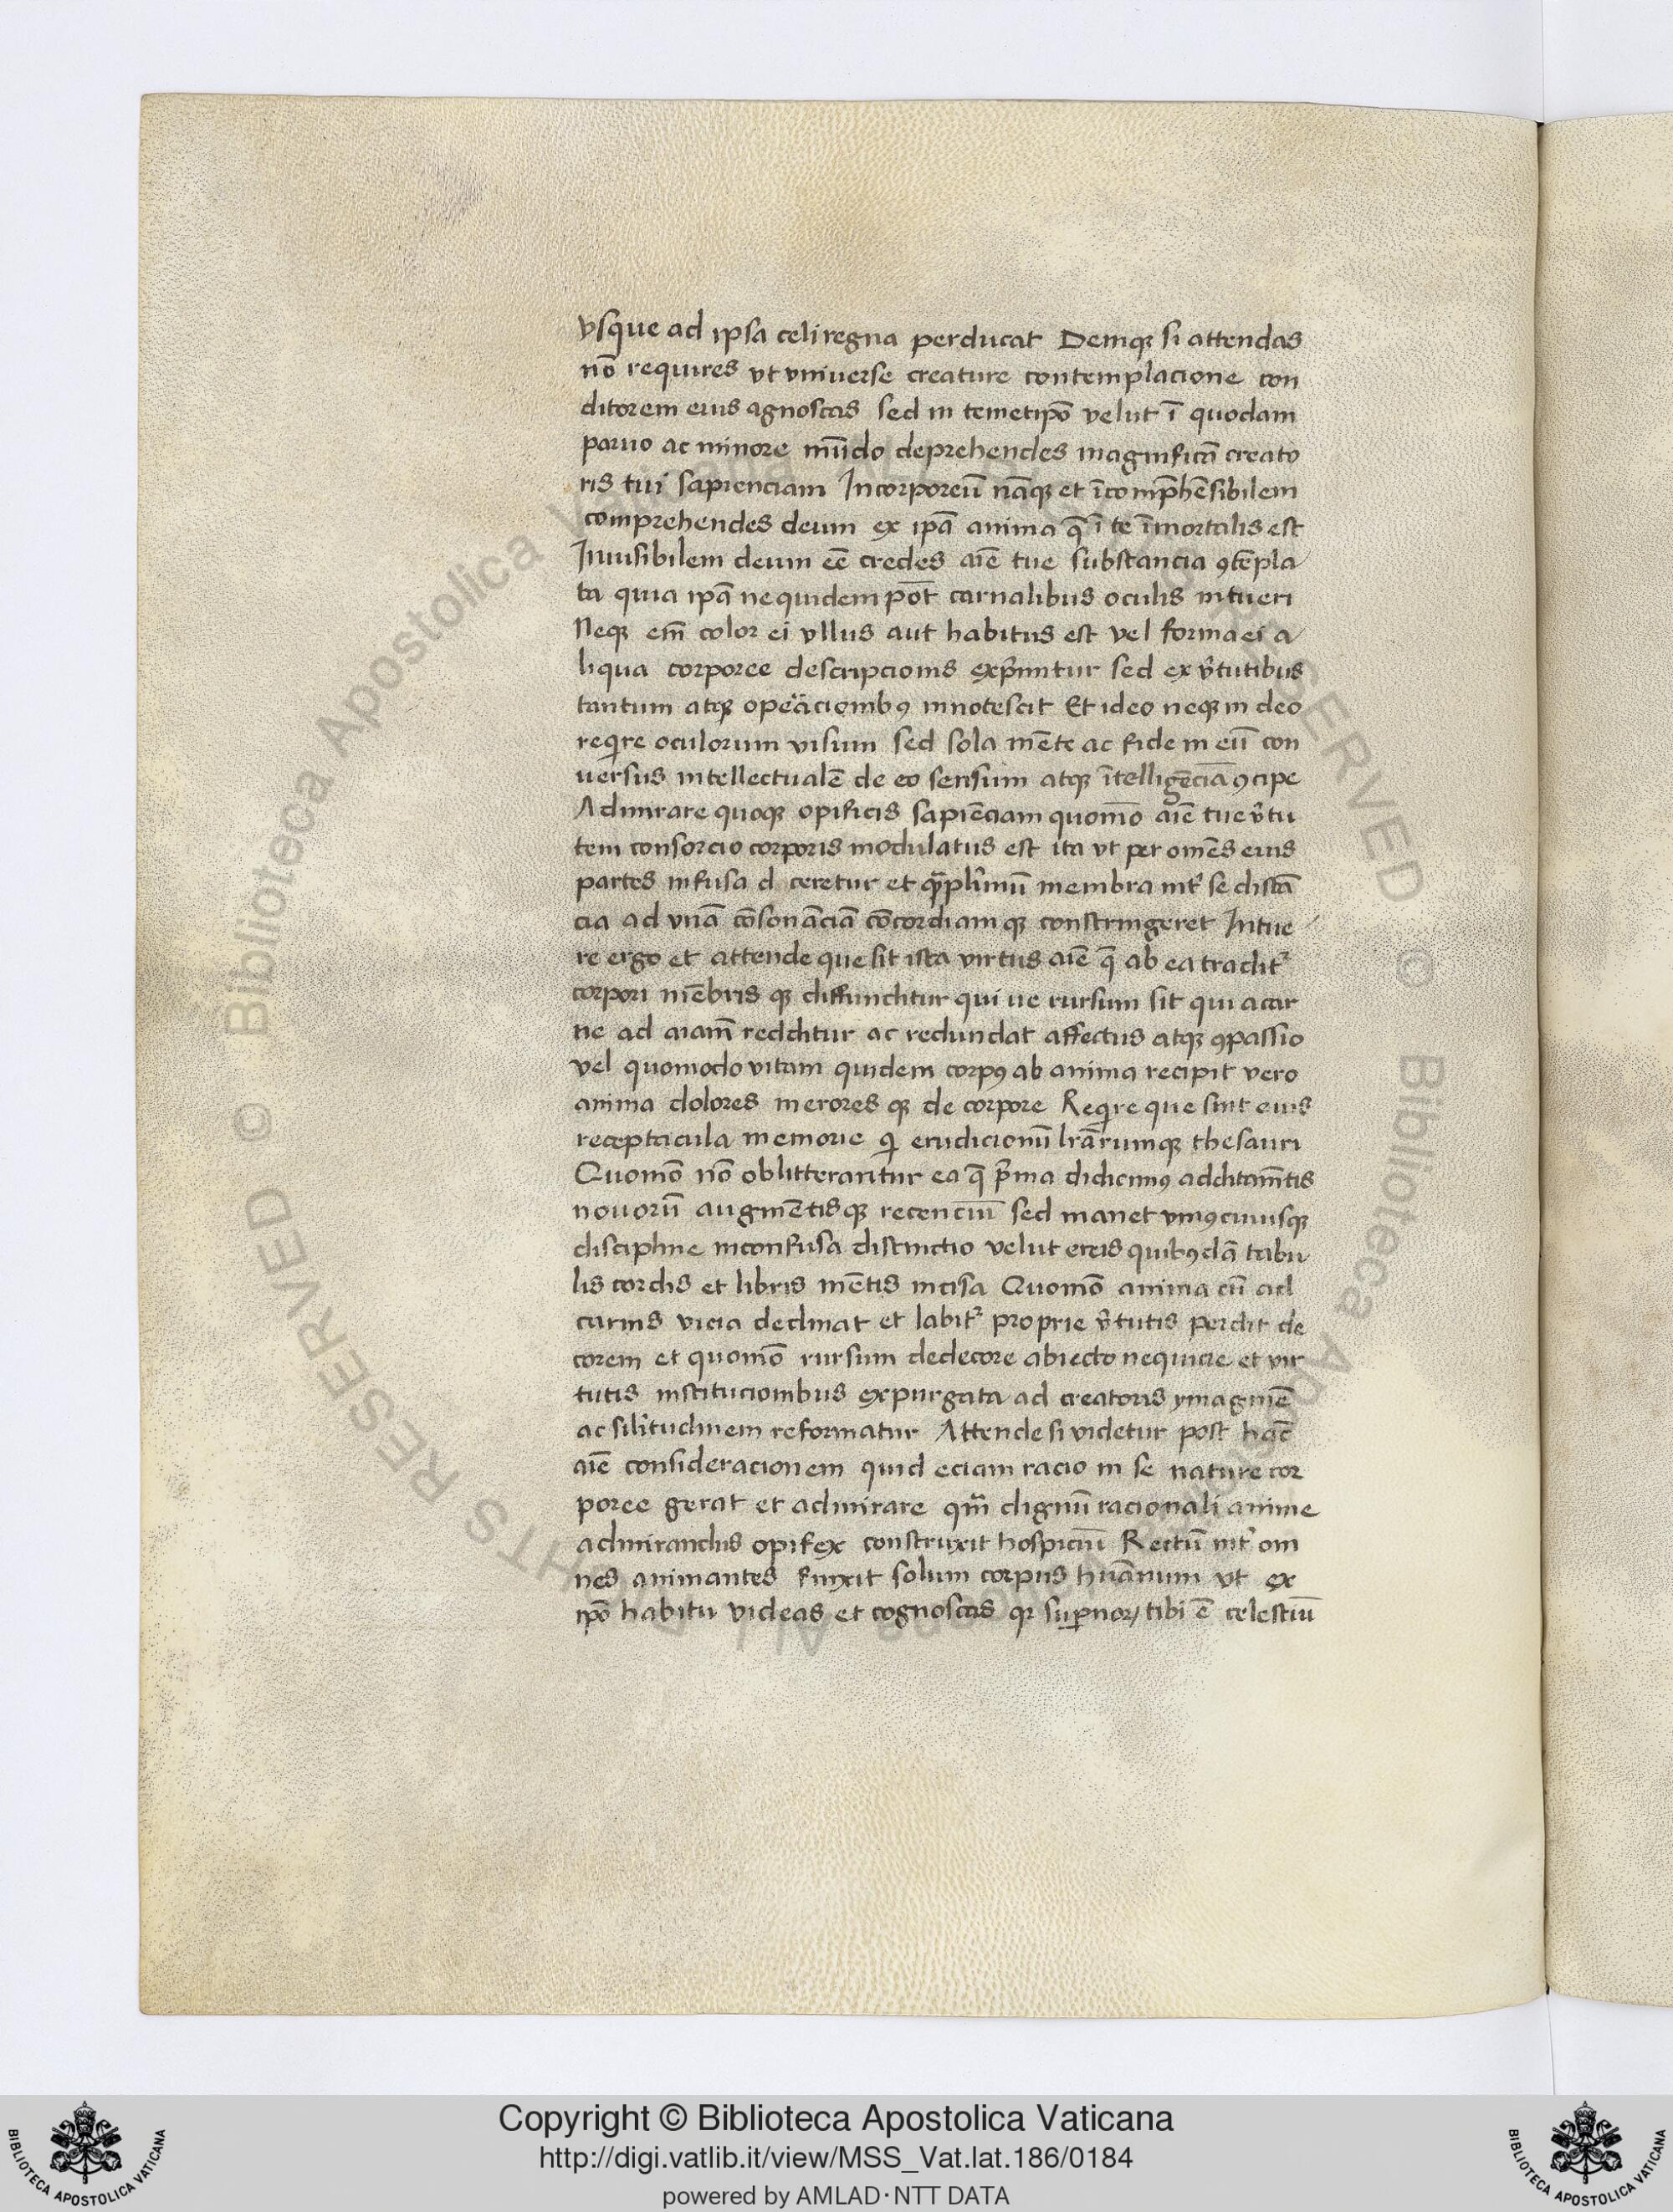 vsque ad ipsa celi regna perducat Deniqꝫ si attendas
nō requires vt vniuerse creature contemplacione con
ditorem eius agnoscas sed in temetip̄o velut ī quodam
paruo ac minore mūdo deprehendes magnificā creato
ris tui sapienciam Incorporeū nāqꝫ et īcomp̄hēsibilem
comprehendes deum ex ip̄a anima q̄ ī te īmortalis est
Inuisibilem deum eē credes aīe tue substancia ꝯtēpla
ta quia ip̄a ne quidem pōt carnalibus oculis intueri
Neqꝫ em̄ color ei vllus aut habitus est vel forma ei a
liqua corporee descripcionis exp̄mitur sed ex v̄tutibus
tantum atqꝫ opeāciombꝯ innotescit Et ideo neqꝫ in deo
reqire oculorum visum sed sola mēte ac fide in eū con
uersus intellectualē de eo sensum atqꝫ ītelligēciā ꝯcipe
Admirare quoqꝫ opificis sapiēciam quomō aīe tue v̄tu
tem consorcio corporis modulatus est ita vt per omēs eius
partes infusa d ceretur et q̄pl̄imū membra int̓ se distā
cia ad vnā cōsonāciā cōcordiam qꝫ constringeret Intue
re ergo et attende que sit ista virtus aīe q̄ ab ea tradit᷑
corpori mēbris qꝫ diffunditur qui ue rursum sit qui a car
ne ad aīam redditur ac redundat affectus atqꝫ ꝯpassio
vel quomodo vitam quidem corpꝯ ab anima recipit vero
anima dolores merores qꝫ de corpore Reqire que sint eius
receptacula memorie qi erudicionū lr̄arumqꝫ thesauri
Quomō nō oblitterantur ea q̄ p̄ma didicimꝯ additam̄tis
nouorū augmētisqꝫ recenciū sed manet vniꝯcuiusqꝫ
discipline inconfusa distinctio velut ereis quibꝯdā tabu
lis cordis et libris mētis incisa Quomō anima cū ad
carnis vicia declinat et labit᷑ proprie v̄tutis perdit de
corem et quomō rursum dedecore abiecto nequicie et vir
tutis institucionibus expurgata ad creatoris ymaginē
ac sil̄itudinem reformatur Attende si videtur post hāc
aīe consideracionem quid eciam racio in se nature cor
poree gerat et admirare qm̄ dignū racionali anime
admirandus opifex construxit hospiciū Rectū int̓ om
nes animantes finxit solum corpus huānum vt ex
ip̄o habitu videas et cognoscas qꝛ sup̄norꝝ tibi ē celestiū
Copyright © Biblioteca Apostolica Vaticana
http://digi.vatlib.it/view/MSS_Vat.lat.186/0184
powered by AMLAD·NTT DATA
BIBLIOTECA APOSTOLICA VATICANA
BIBLIOTECA APOSTOLICA VATICANA